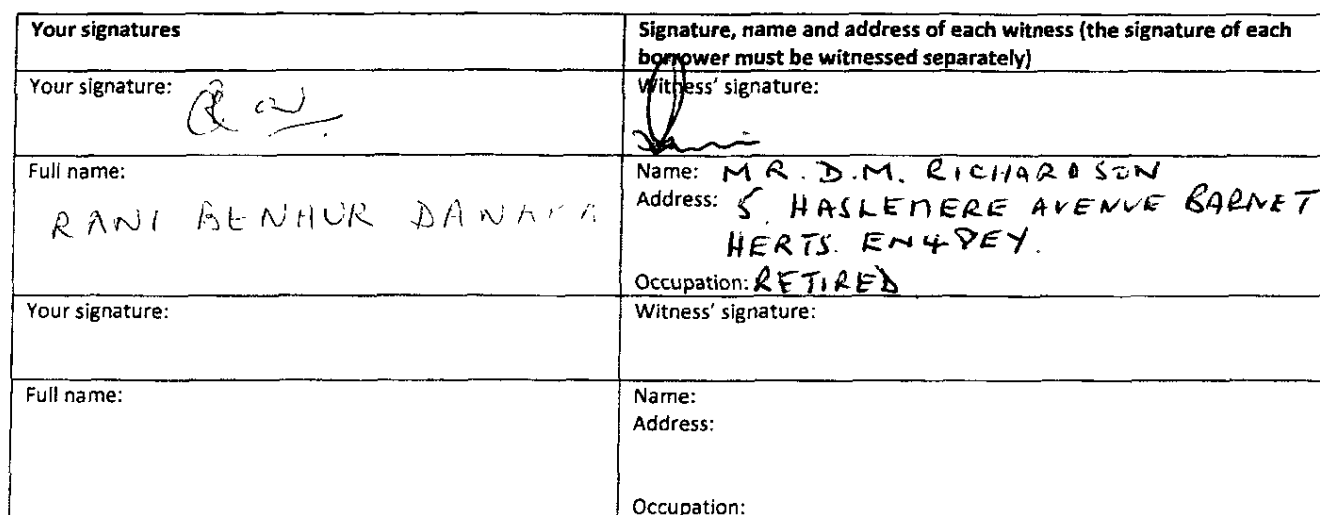 Your signatures
Signature, name and address of each witness (the signature of each
borrower must be witnessed separately)
Your signature:
Witness' signature:
Full name:
RANI BENHUR
Name: MR. D.M. RICHARDSON
Address: 5, HASLEMERE AVENUE BARNET
HERTS. EN4 8EY.
Occupation: RETIRED
Your signature:
Witness' signature:
Full name:
Name:
Address:
Occupation: